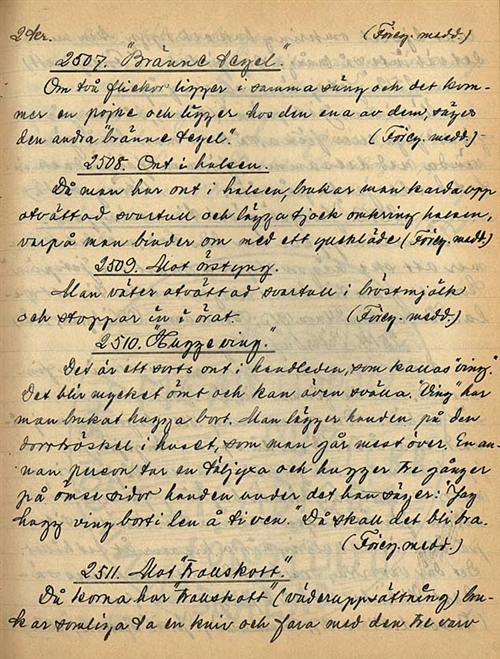 2 kr. (Föreg. medd.)
2507. "Bränne tegel."
Om två flickor ligger i samma säng och det kom-
mer en pojke och lägger hos den ena av dem, säges
den andra "bränne tegel". (Föreg. medd.)
2508. Ont i halsen.
Då man har ont i halsen, brukar man karda upp
otvättad svartull och lägga tjock omkring halsen,
varpå man binder om med ett yllekläde (Föreg. medd.)
2509. Mot örstyng.
Man väter otvättad svartull i bröstmjölk
och stoppar in i örat. (Föreg. medd.)
2510. "Hugge ving".
Det är ett sorts ont i handleden, som kallas "ving".
Det blir mycket ömt och kan även svälla. "Ving" har
man brukat hugga bort. Man lägger handen på den
dorrtröskel i huset, som man går mest över. En an-
nan person tar en täljyxa och hugger tre gånger
på ömse sidor handen under det han säger: "Jag
hugg ving bort i len å ti ven." Då skall det bli bra.
(Föreg. medd.)
2511. Mot "Trollskott".
Då korna har "Trollskott" (väderuppsättning) bru-
kar somliga ta en kniv och fara med den tre varv